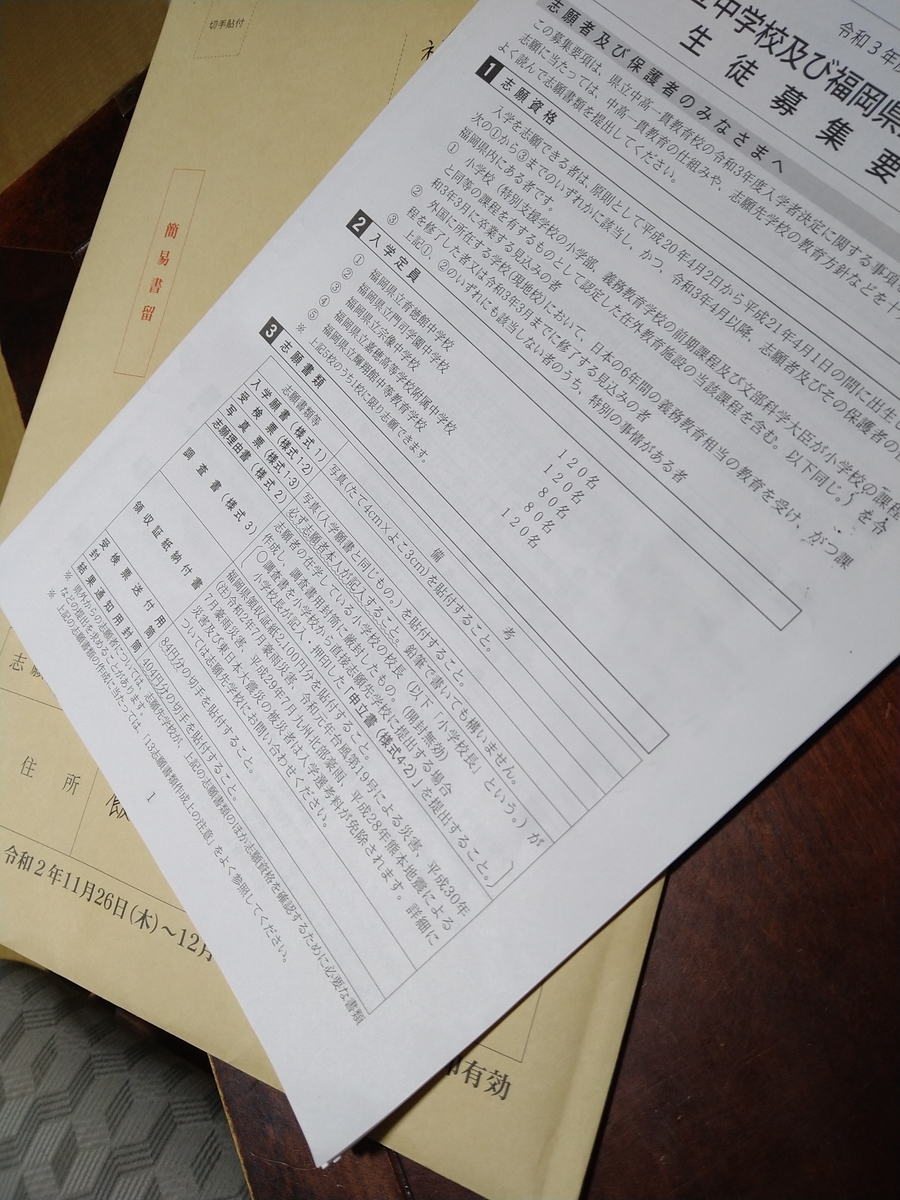 令和3年度
立中学校及び福岡県
生徒募集要
志願者及び保護者のみなさまへ
この募集要項は、県立中高一貫教育校の令和3年度入学者決定に関する事項
志願に当たっては、中高一貫教育の仕組みや、志願先学校の教育方針などを十
よく読んで志願書類を提出してください。
1 志願資格
入学を志願できる者は、原則として平成20年4月2日から平成21年4月1日の間に出生し
次の①から③までのいずれかに該当し、かつ、令和3年4月以降、志願者及びその保護者の
福岡県内にある者です。
① 小学校（特別支援学校の小学部、義務教育学校の前期課程及び文部科学大臣が小学校の課程
と同等の課程を有するものとして認定した在外教育施設の当該課程を含む。以下同じ。）を令
和3年3月に卒業する見込みの者
② 外国に所在する学校(現地校)において、日本の6年間の義務教育相当の教育を受け、かつ課
程を修了した者又は令和3年3月までに修了する見込みの者
③ 上記①、②のいずれにも該当しない者のうち、特別の事情がある者
2 入学定員
① 福岡県立育徳館中学校 120名
② 福岡県立門司学園中学校 120名
③ 福岡県立宗像中学校 80名
④ 福岡県立嘉穂高等学校附属中学校 80名
⑤ 福岡県立輝翔館中等教育学校 120名
※ 上記5校のうち1校に限り志願できます。
3 志願書類
志願書類等 備考
入学願書（様式1） 写真(たて4cm×よこ3cm)を貼付すること。
受検票（様式1-2）
写真票（様式1-3） 写真(入学願書と同じもの。)を貼付すること。
志願理由書（様式2） 必ず志願者本人が記入すること。鉛筆で書いても構いません。
調査書（様式3） 志願者の在学している小学校の校長（以下「小学校長」という。）が
作成し、調査書用封筒に厳封したもの。（開封無効）
○調査書を小学校から直接志願先学校に提出する場合
小学校長が記入・押印した「申立書（様式4-2）」を提出すること。
領収証紙納付書 福岡県領収証紙2,100円分を貼付すること。
(注)令和2年7月豪雨災害、令和元年台風第19号による災害、平成30年
7月豪雨災害、平成29年7月九州北部豪雨、平成28年熊本地震による
災害及び東日本大震災の被災者は入学選考料が免除されます。詳細に
ついては志願先学校にお問い合わせください。
受検票送付用封筒 84円分の切手を貼付すること。
結果通知用封筒 404円分の切手を貼付すること。
※ 県外からの志願者については、志願先学校が、上記の志願書類のほか志願資格を確認するために必要な書類
などの提出を求めることがあります。
※ 上記の志願書類の作成に当たっては、「13志願書類作成上の注意」をよく参照してください。
1
切手貼付
簡易書留
志願
住所
令和2年11月26日(木)～12月
印有効